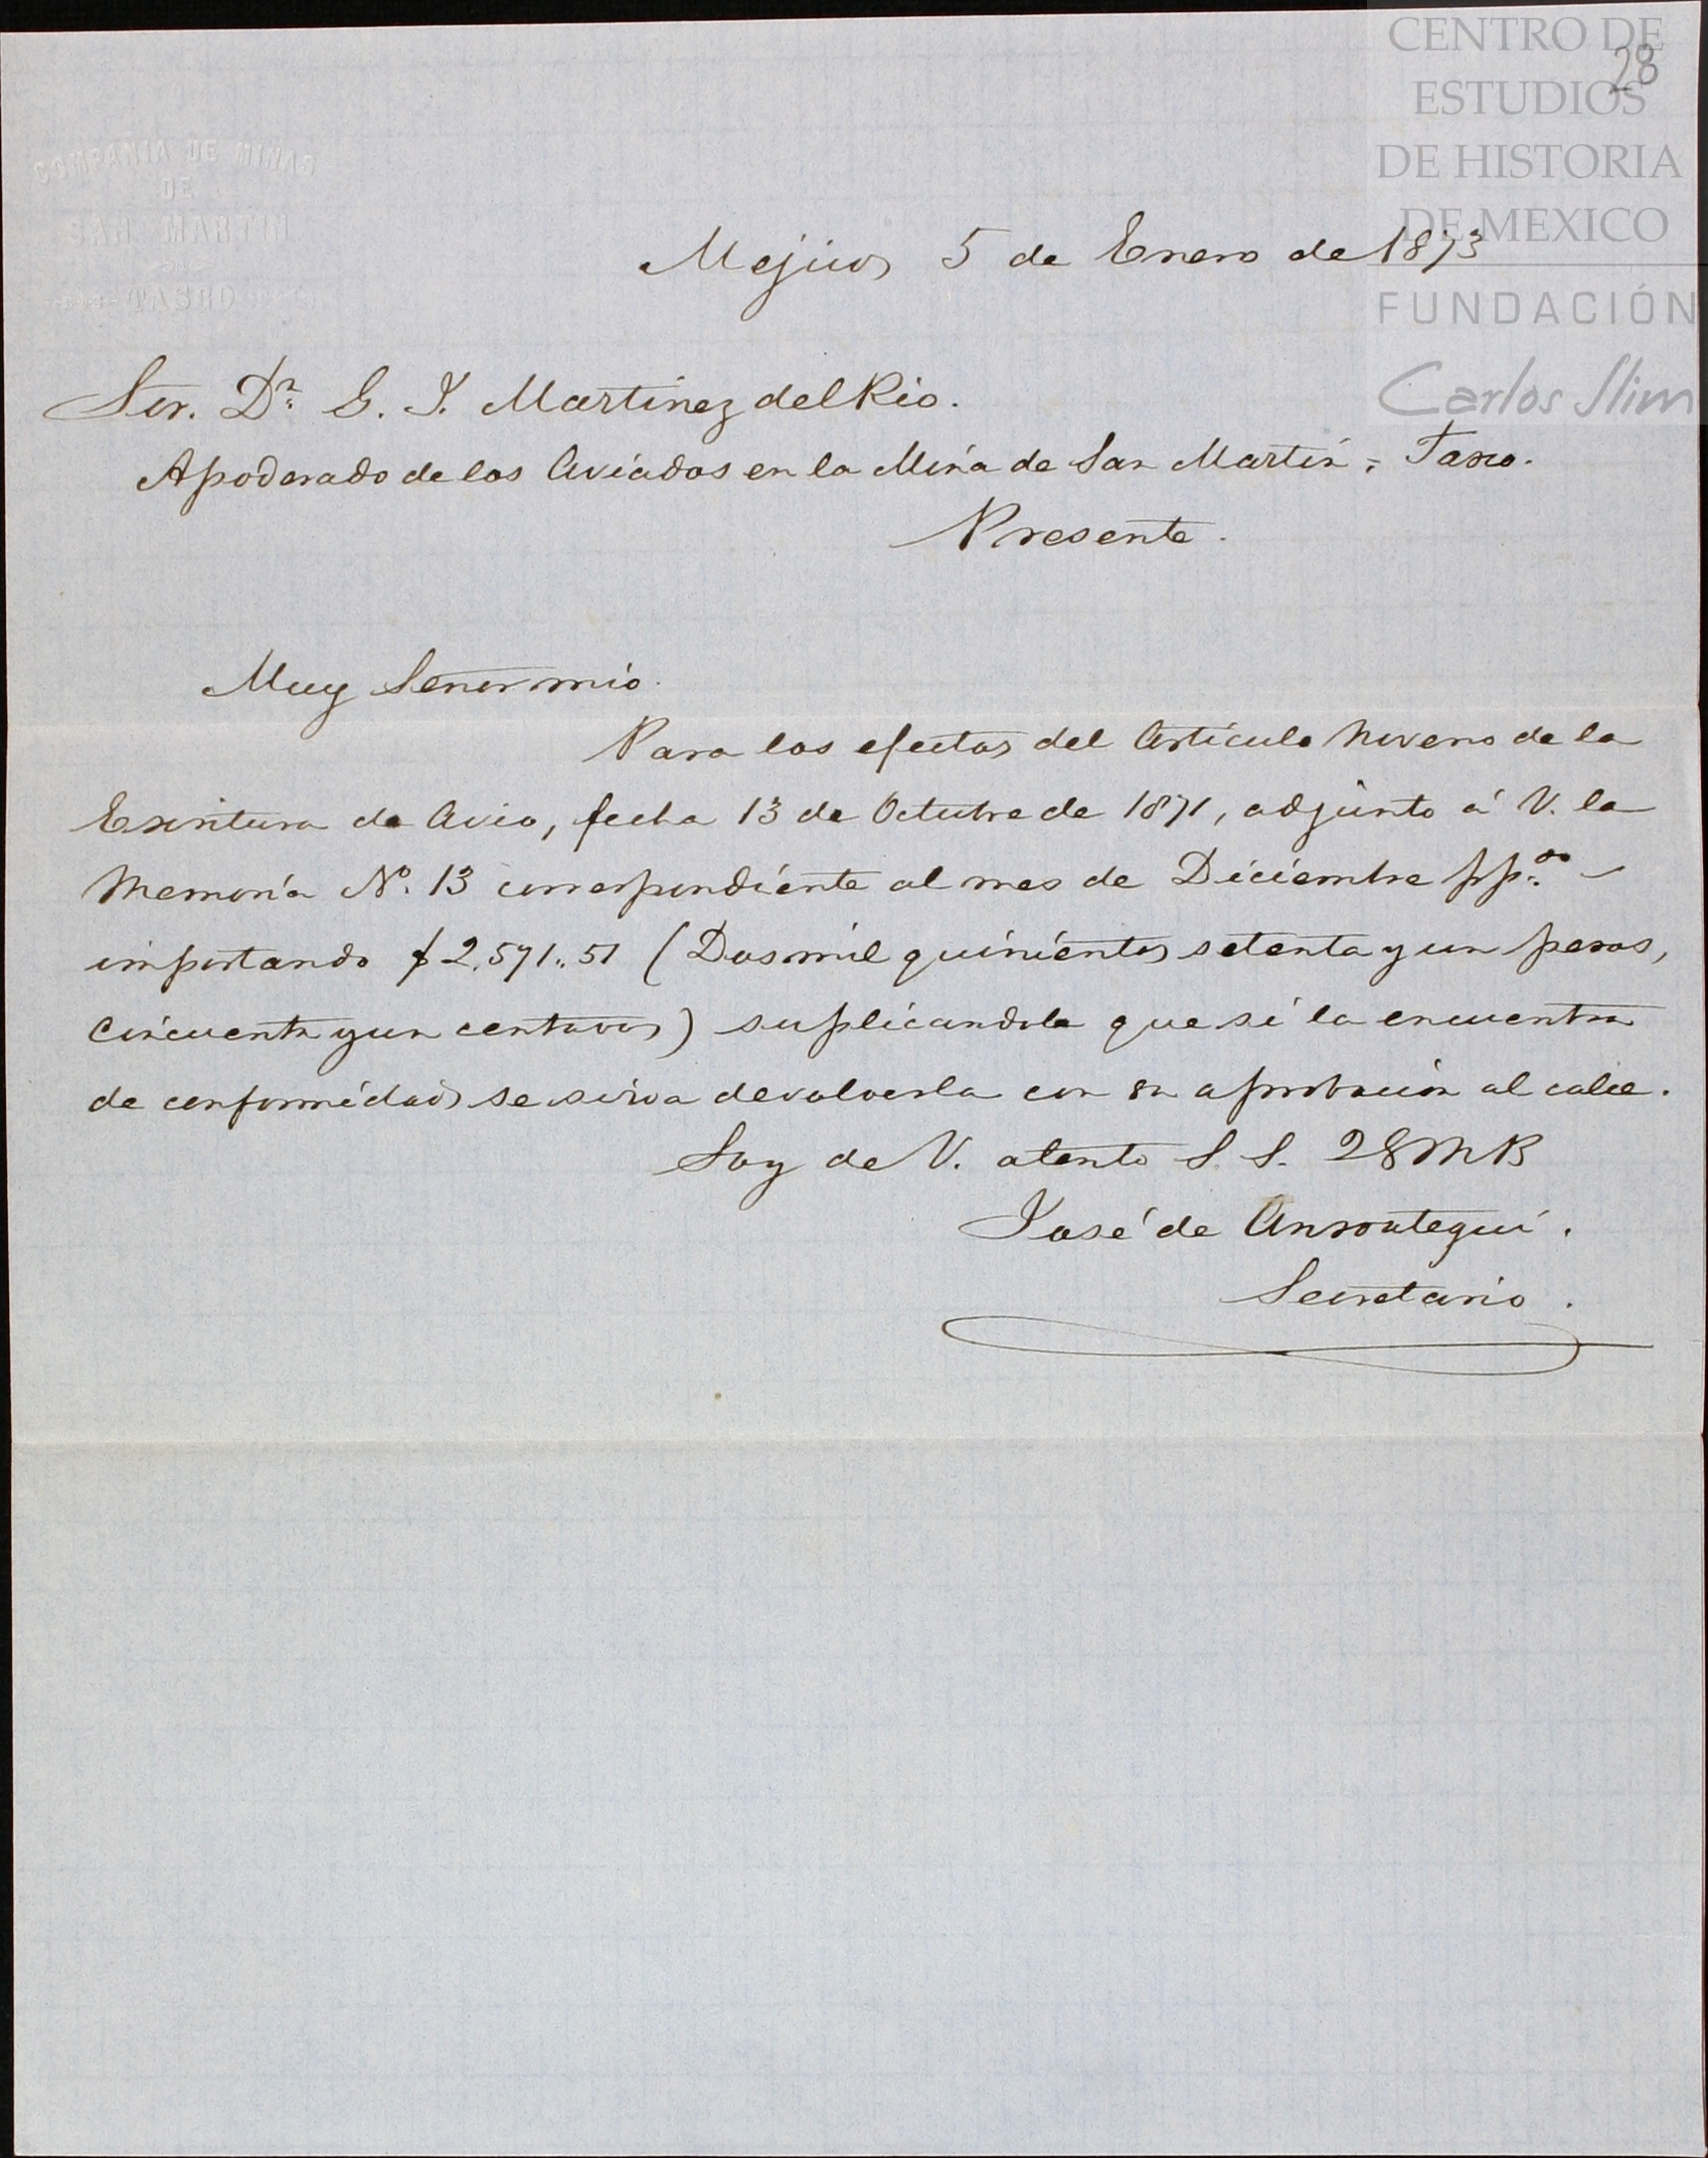 CENTRO DE
ESTUDIOS
DE HISTORIA
DE MEXICO
FUNDACIÓN
Carlos Slim
28
COMPAÑIA DE MINAS
DE
SAN MARTIN
TASCO
Mejico, 5 de Enero de 1873
Sor. Dn. G. J. Martinez del Rio.
Apoderado de los Aviados en la Mina de San Martin, Tasco.
Presente.
Muy Señor mio.
Para los efectos del Articulo Noveno de la
Escritura de Avio, fecha 13 de Octubre de 1871, adjunto á V. la
Memoria No. 13 correspondiente al mes de Diciembre pp.do
importando $2,571..51 (Dos mil quinientos setenta y un pesos,
Cincuenta y un centavos) suplicandole que si la encuentra
de conformidad se sirva devolverla con su aprobacion al calce.
Soy de V. atento S. S. Q B S M B
José de Ansoategui.
Secretario.